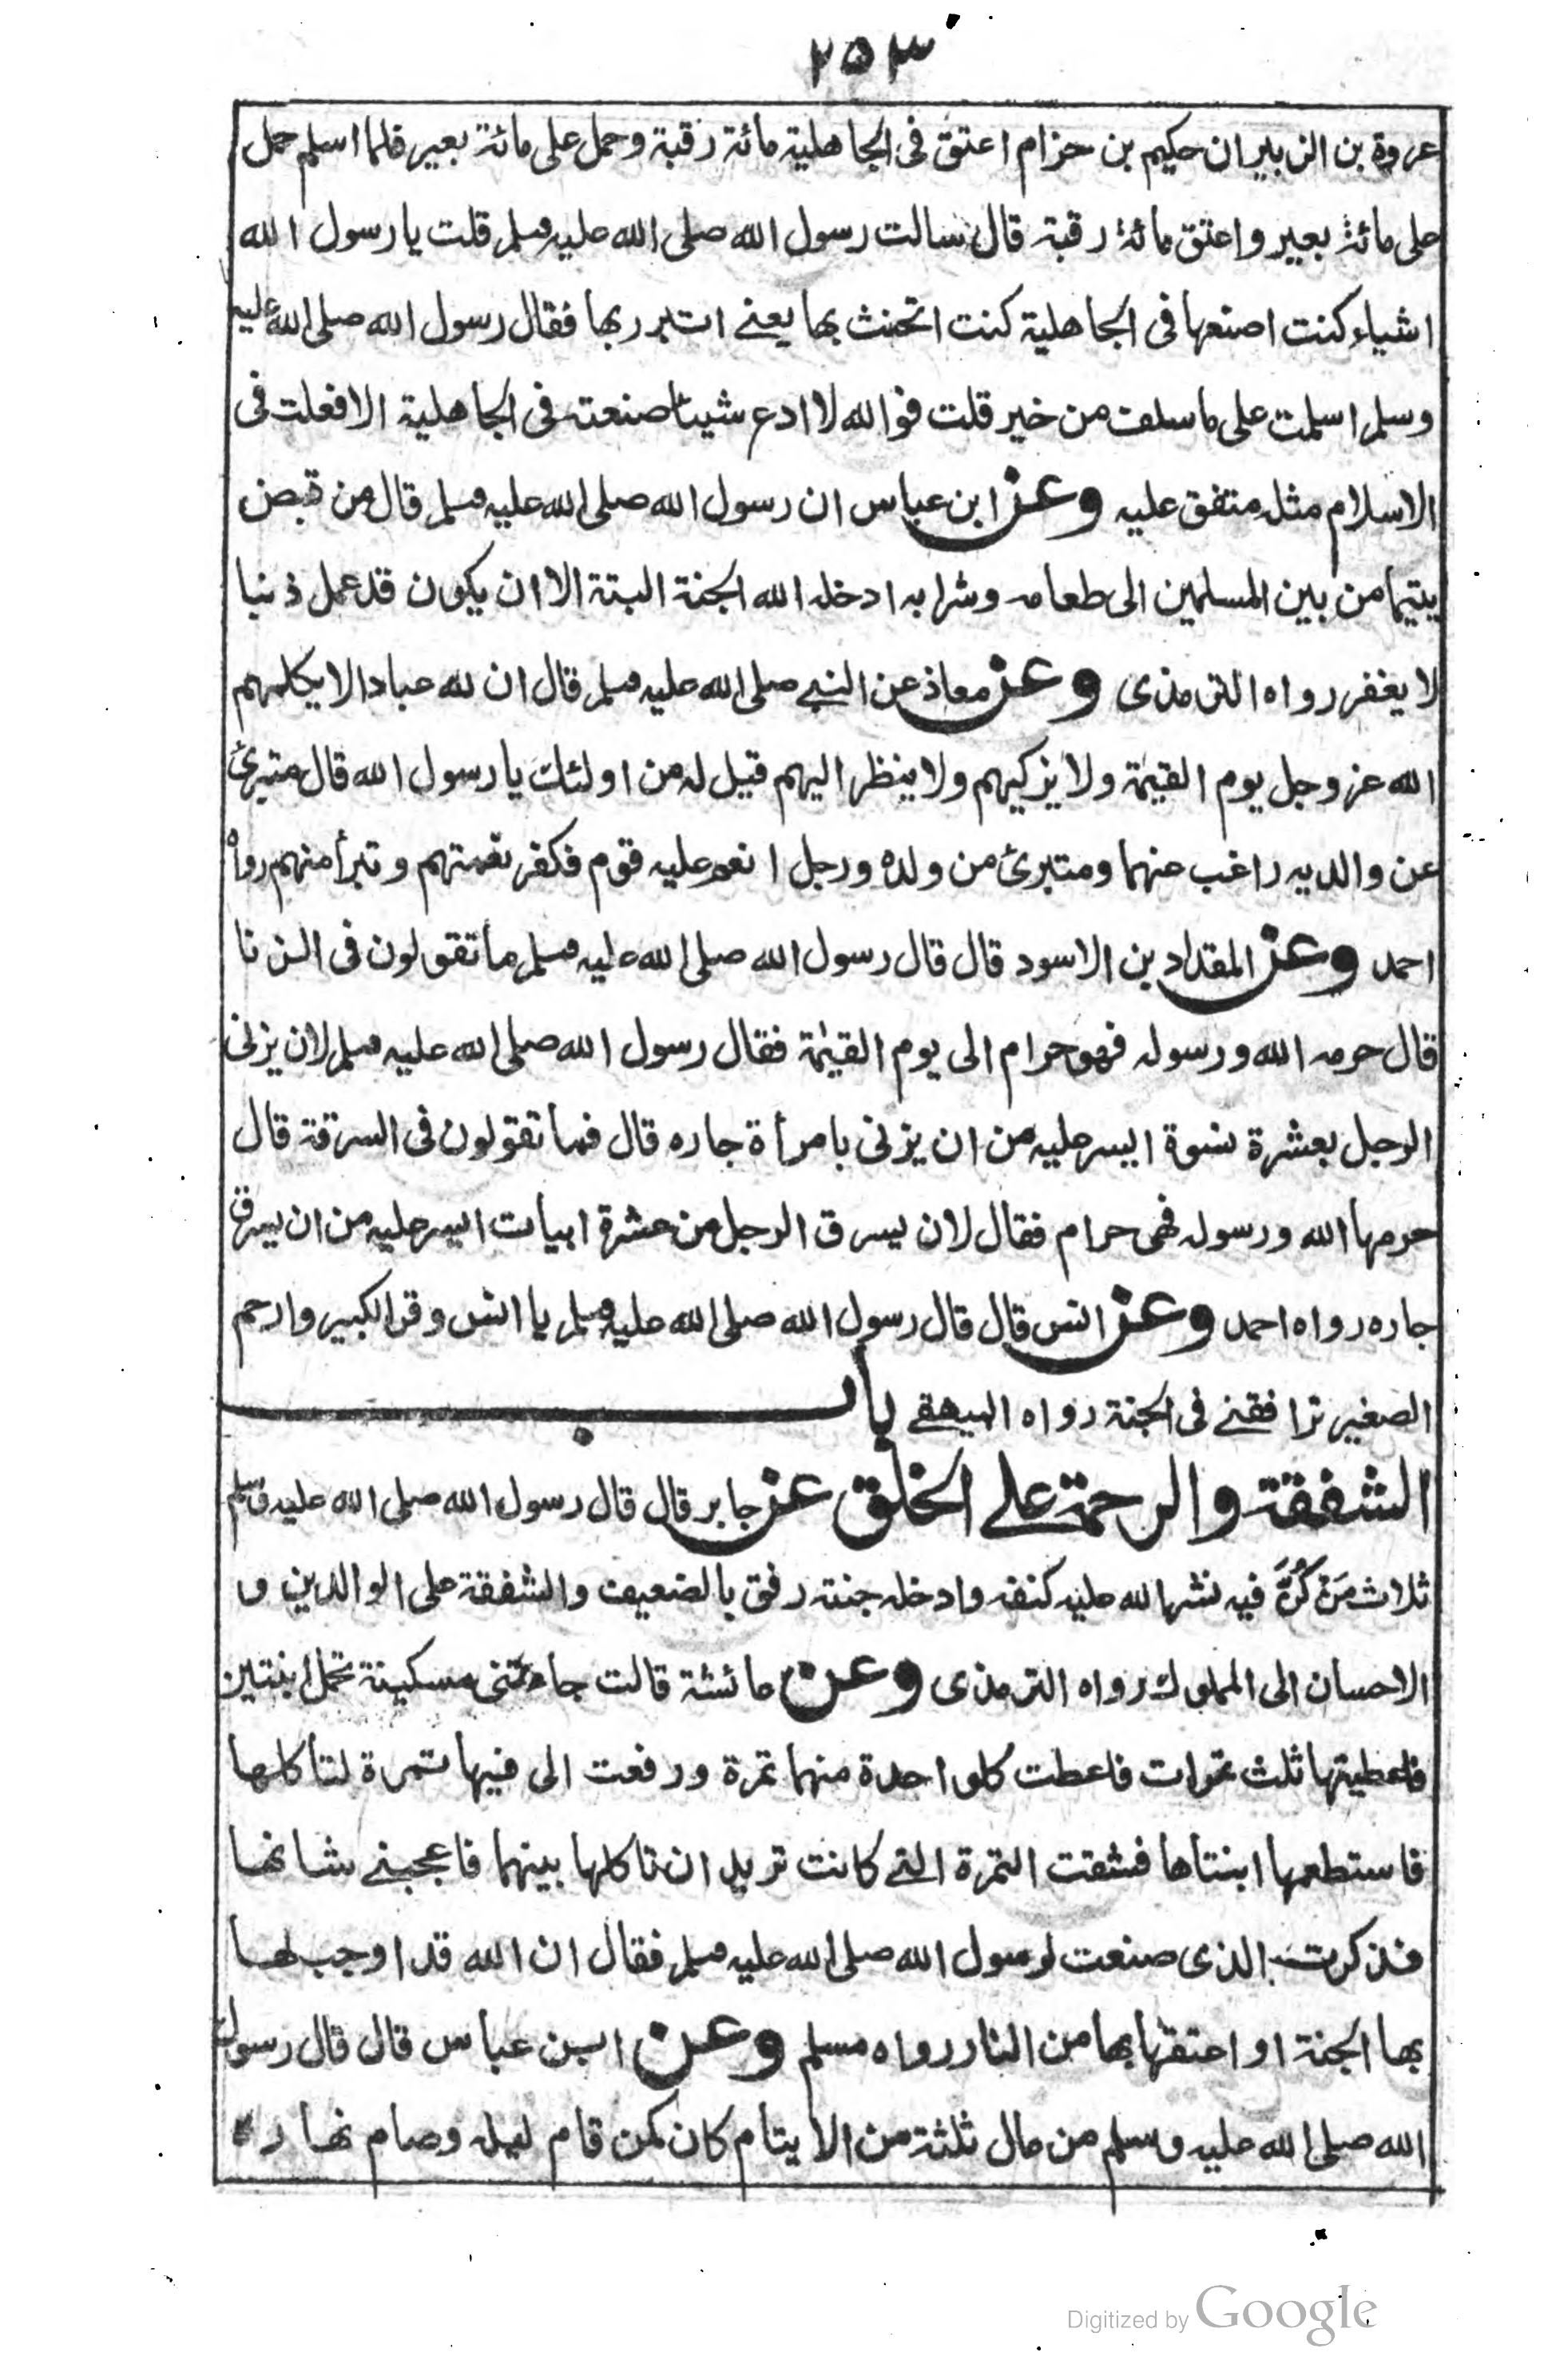 ٢٥٣
عروة بن الزبير ان حكيم بن حزام اعتق فى الجاهلية مائة رقبة وحمل على مائة بعير فلما اسلم حمل
على مائة بعير واعتق مائة رقبة قال سالت رسول الله صلى الله عليه وسلم قلت يا رسول الله
اشياء كنت اصنعها فى الجاهلية كنت اتحنث بها يعنے اتبرر بها فقال رسول الله صلى الله عليه
وسلم اسلمت على ما سلف من خير قلت فوالله لا ادع شيئا صنعته فى الجاهلية الا فعلت فى
الاسلام مثله متفق عليه وعن ابن عباس ان رسول الله صلى الله عليه وسلم قال من قبض
يتيما من بين المسلمين الى طعامه وشرابه ادخله الله الجنة البتة الا ان يكون قد عمل ذنبا
لا يغفر رواه الترمذى وعن معاذ عن النبے صلى الله عليه وسلم قال ان لله عبادا لا يكلمهم
الله عز وجل يوم القيٰمة ولا يزكيهم ولا ينظر اليهم قيل له من اولئك يا رسول الله قال متبرئ
عن والديه راغب عنهما ومتبرئ من ولده ورجل انعم عليه قوم فكفر نعمتهم وتبرأ منهم رواه
احمد وعن المقداد بن الاسود قال قال رسول الله صلى الله عليه وسلم ما تقولون فى الزنا
قال حرمه الله ورسوله فهو حرام الى يوم القيٰمة فقال رسول الله صلى الله عليه وسلم لان يزنى
الرجل بعشرة نسوة ايسر عليه من ان يزنى بامرأة جاره قال فما تقولون فى السرقة قال
حرمها الله ورسوله فهى حرام فقال لان يسرق الرجل من عشرة ابيات ايسر عليه من ان يسرق
جاره رواه احمد وعن انس قال قال رسول الله صلى الله عليه وسلم يا انس وقر الكبير وارحم
الصغير ترافقنے فى الجنة رواه البيهقے باب
الشفقة والرحمة علے الخلق عن جابر قال قال رسول الله صلى الله عليه وسلم
ثلاث مَنْ كُنَّ فيه نشر الله عليه كنفه وادخله جنته رفق بالضعيف والشفقة على الوالدين و
الاحسان الى المملوك رواه الترمذى وعن عائشة قالت جاءتنى مسكينة تحمل ابنتين
فاعطيتها ثلث تمرات فاعطت كل واحدة منهما تمرة ورفعت الى فيها تمرة لتاكلها
فاستطعمها ابنتاها فشقت التمرة التے كانت تريد ان تاكلها بينهما فاعجبنے شانها
فذكرت الذى صنعت لرسول الله صلى الله عليه وسلم فقال ان الله قد اوجب لها
بها الجنة او اعتقها بها من النار رواه مسلم وعن ابن عباس قال قال رسول
الله صلى الله عليه وسلم من عال ثلثة من الايتام كان كمن قام ليله وصام نهاره
Digitized by Google